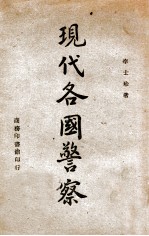 李士珍著
現代各國警察
商務印書館印行